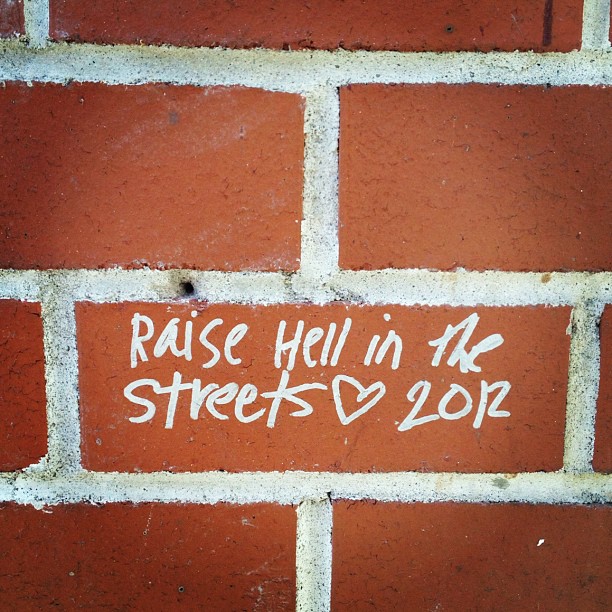 Raise Hell in the
Streets ♡ 2012